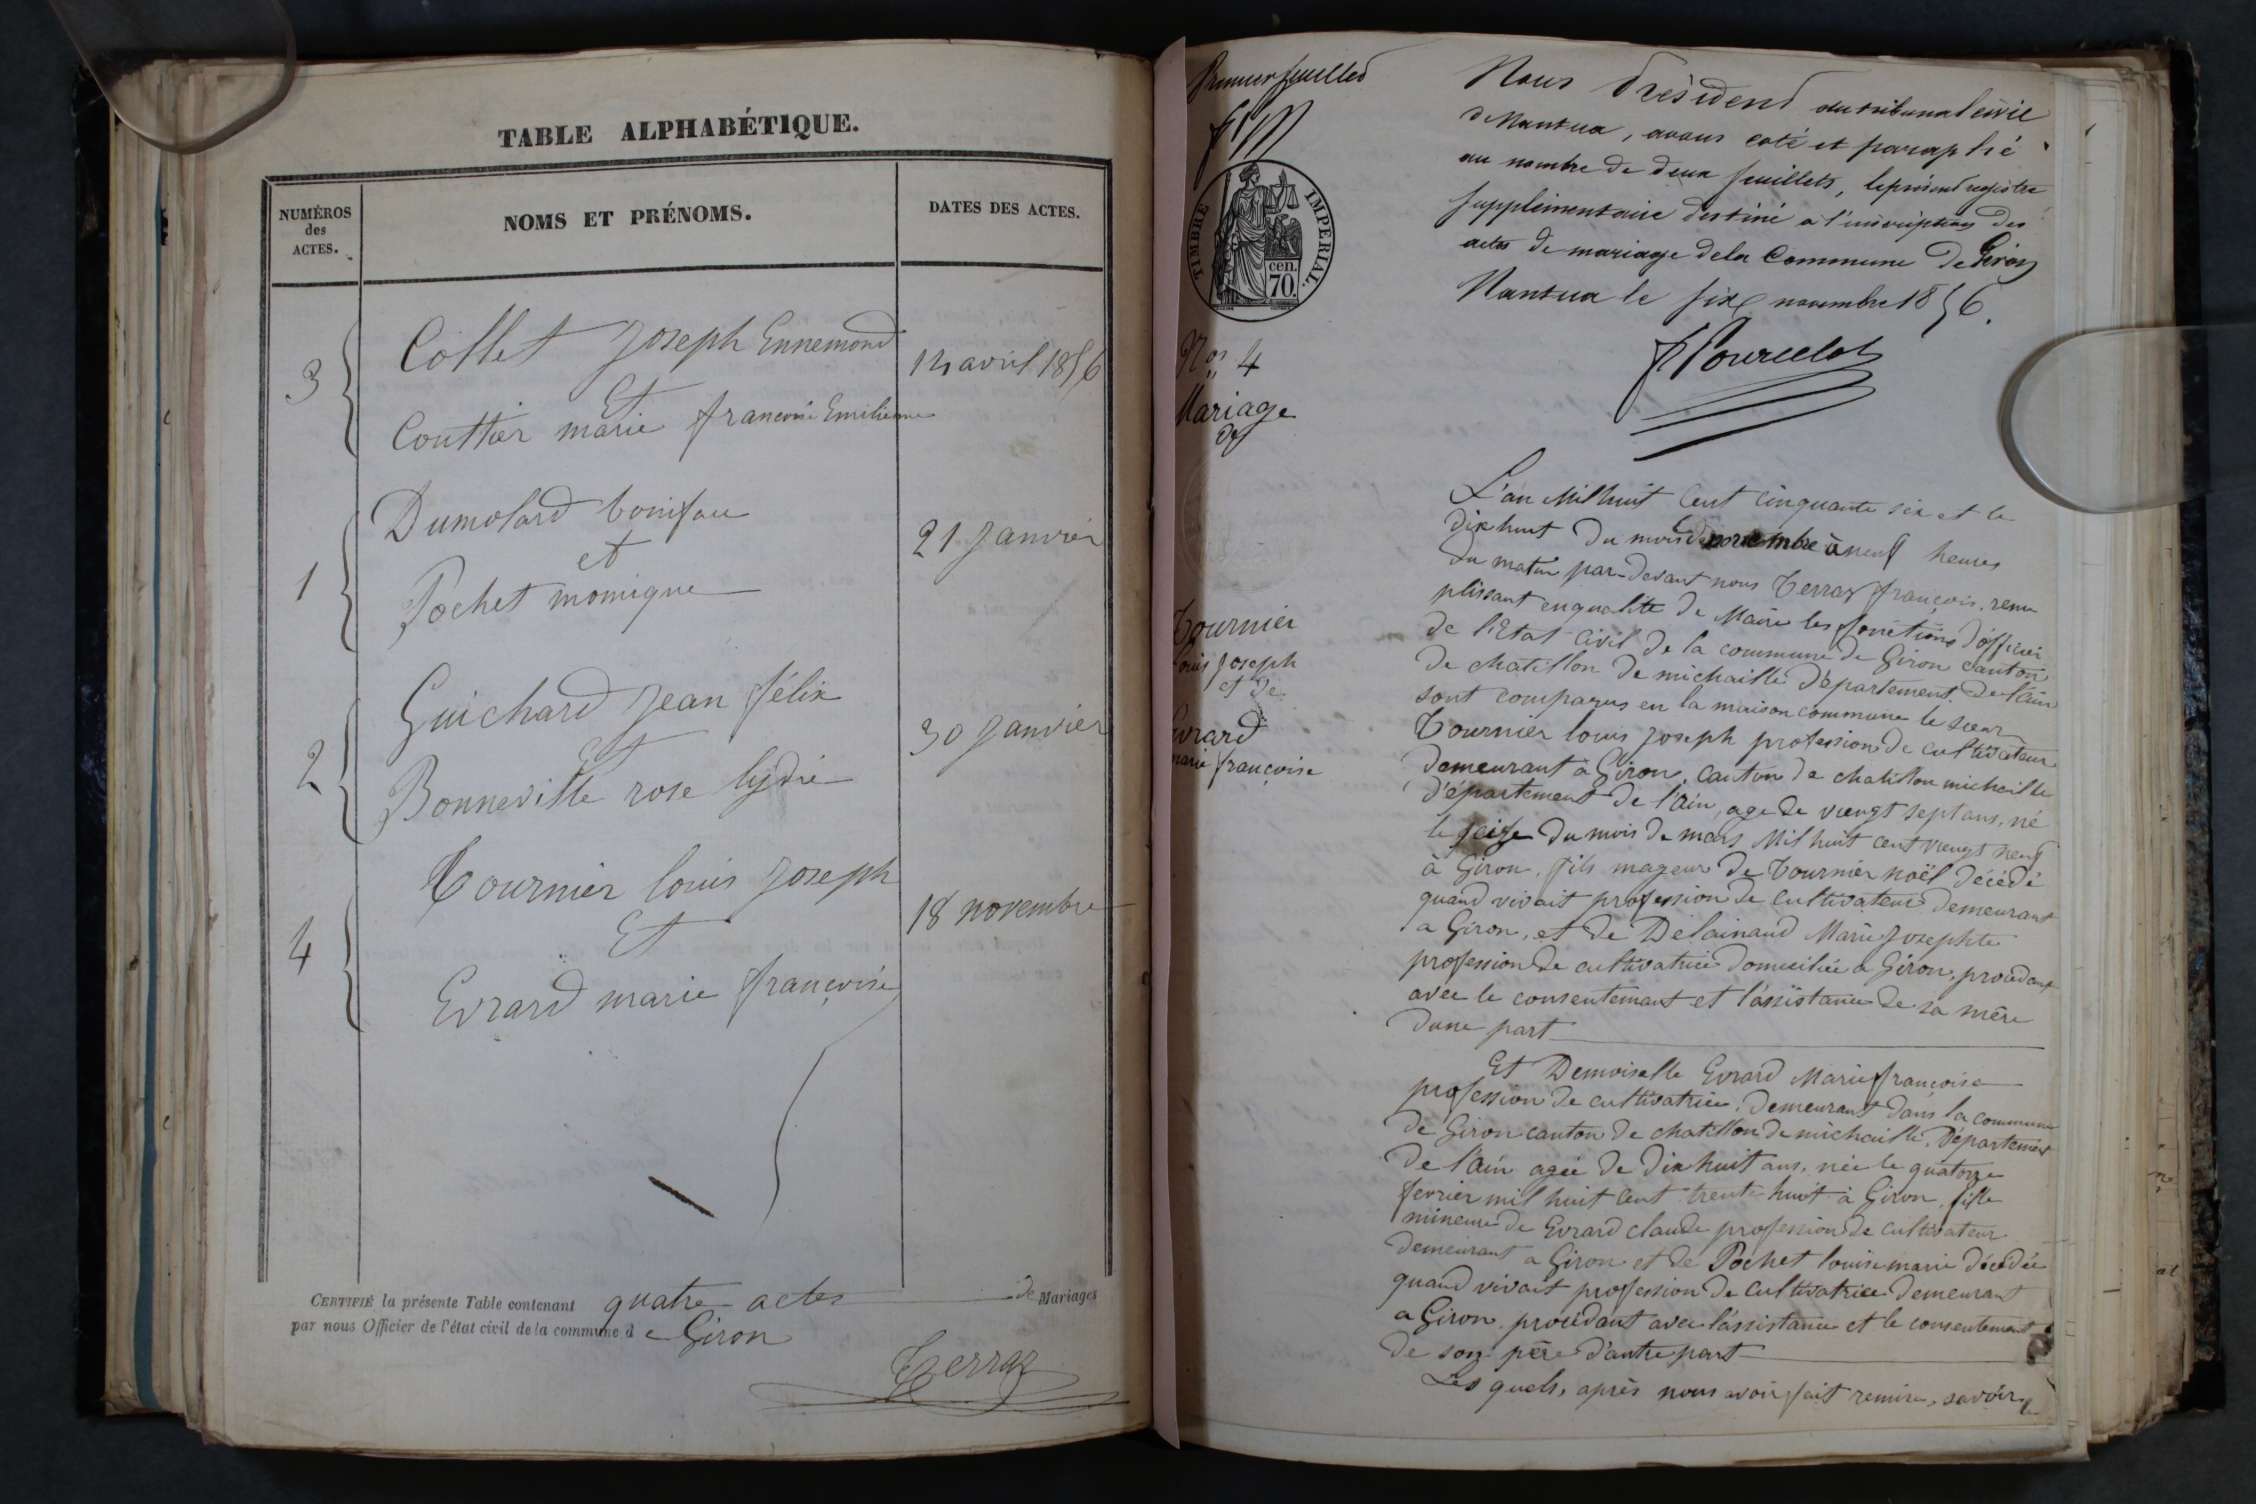 TABLE ALPHABÉTIQUE.
NUMÉROS
des
ACTES.
NOMS ET PRÉNOMS.
DATES DES ACTES.
3
Collet Joseph Ennemond
Et
Couttier marie françoise Emilienne
14 avril 1856
1
Dumolard boniface
et
Pochet monique
21 janvier
2
Guichard jean félix
Et
Bonneville rose lydie
30 janvier
4
Tournier louis joseph
Et
Evrard marie françoise
18 novembre
CERTIFIÉ la présente Table contenant quatre actes de Mariages
par nous Officier de l'état civil de la commune de Giron
Terraz
Premier feuillet
TIMBRE IMPERIAL.
cen.
70.
Nous Président du tribunal civil
de Nantua, avons coté et paraphé
au nombre de deux feuillets, le présent registre
supplémentaire destiné a l'inscription des
actes de mariage de la Commune de Giron
Nantua le six novembre 1856.
Pourcelot
Nos 4
Mariage
de
Tournier
Louis joseph
et de
Evrard
marie françoise
L'an Mil huit Cent Cinquante six et le
dix huit du mois de novembre à neuf heures
du matin par-devant nous Terraz françois, rem
plissant en qualité de Maire les fonctions d'officier
de l'Etat Civil de la commune de Giron canton
de chatillon de michaille département de l'ain
sont comparus en la maison commune le sieur
Tournier louis joseph profession de cultivateur
demeurant à Giron, canton de chatillon michaille
département de l'ain, age de vingt sept ans, né
le seize du mois de mars Mil huit cent vingt neuf
à Giron, fils mageur de Tournier noël décédé
quand vivait profession de cultivateur demeurant
a Giron, et de Delainaud Marie Josephte
profession de cultivatrice domiciliée a Giron, procédant
avec le consentement et l'assistance de sa mère
dune part
Et Demoiselle Evrard Marie françoise
profession de cultivatrice, demeurant dans la commune
de Giron canton de chatillon de michaille, Département
de l'ain agée de dix huit ans, née le quatorze
fevrier mil huit cent trente huit à Giron, fille
mineure de Evrard claude profession de cultivateur
demeurant a Giron et de Pochet louise marie décédée
quand vivait profession de cultivatrice demeurant
a Giron, procédant avec l'assistance et le consentement
de son père d'autre part
Les quels, après nous avoir fait remise, savoir